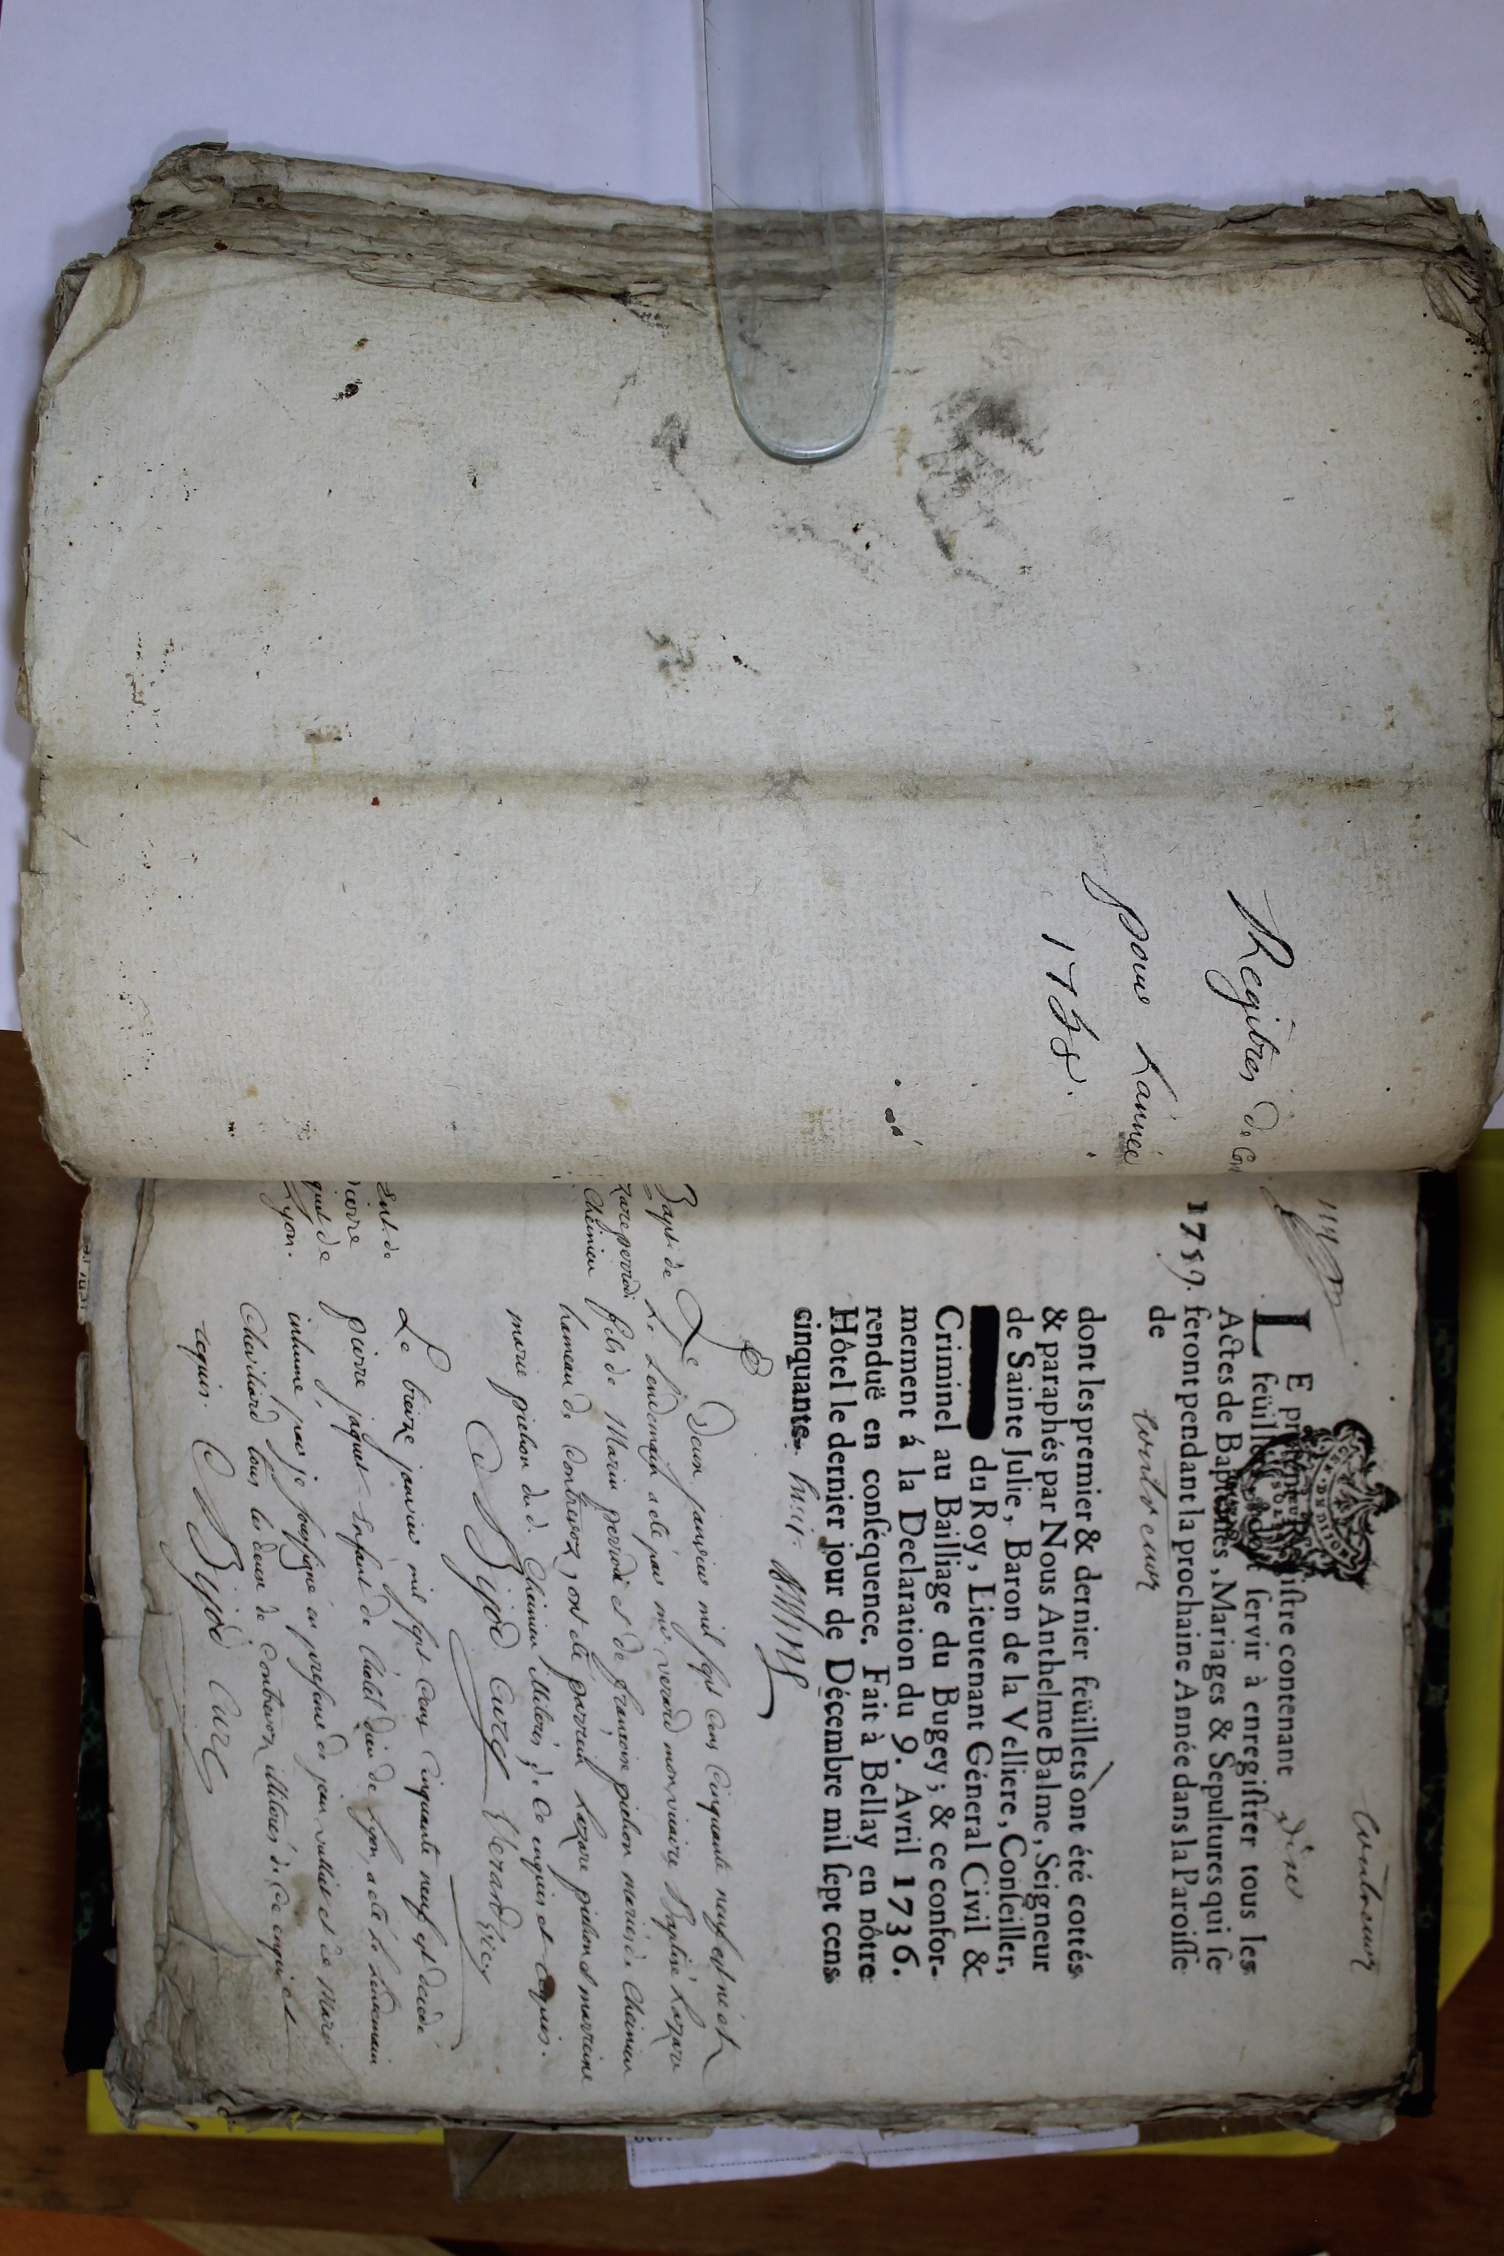 Regitres de Con
pour L'année
1758.
Contrevoz
LE présent Registre contenant dixe
feüillets, doit servir à enregistrer tous les
Actes de Baptêmes, Mariages & Sepultures qui se
1759. feront pendant la prochaine Année dans la Paroisse
de Contrevoz
dont les premier & dernier feüillets ont été cottés
& paraphés par Nous Anthelme Balme, Seigneur
de Sainte Julie, Baron de la Velliere, Conseiller,
du Roy, Lieutenant Géneral Civil &
Criminel au Bailliage du Bugey; & ce confor-
mement á la Declaration du 9. Avril 1736.
renduë en conséquence. Fait à Bellay en nôtre
Hôtel le dernier jour de Décembre mil sept cens
cinquante. huit.
Bapt. de
Lazare perrodi
Cheinieu
Le Deux janvier mil sept cens Cinquante neuf est né et
Le Lendemain a eté par mr verard mon vicaire Baptisé Lazare
fils de Marin perrodi et de françoise pichon mariés de Cheinieu
hameau de Contrevoz, ont été parrein Lazare pichon et marreine
marie pichon du d. Cheinieu illiterés, de Ce enquis et requis.
Bijod Curé Verard vicr
Ent. de
pierre
jaquet de
Lyon.
Le treize janvier mil sept cens Cinquante neuf est decedé
pierre jaquet Enfant de L'hotel Dieu de Lyon, a eté le Lendemain
inhumé par je soussigné en presence de jean vulliet et de Marin
Chevilliard tous les deux de Contrevoz illiterés de Ce enquis et
requis. Bijod Curé